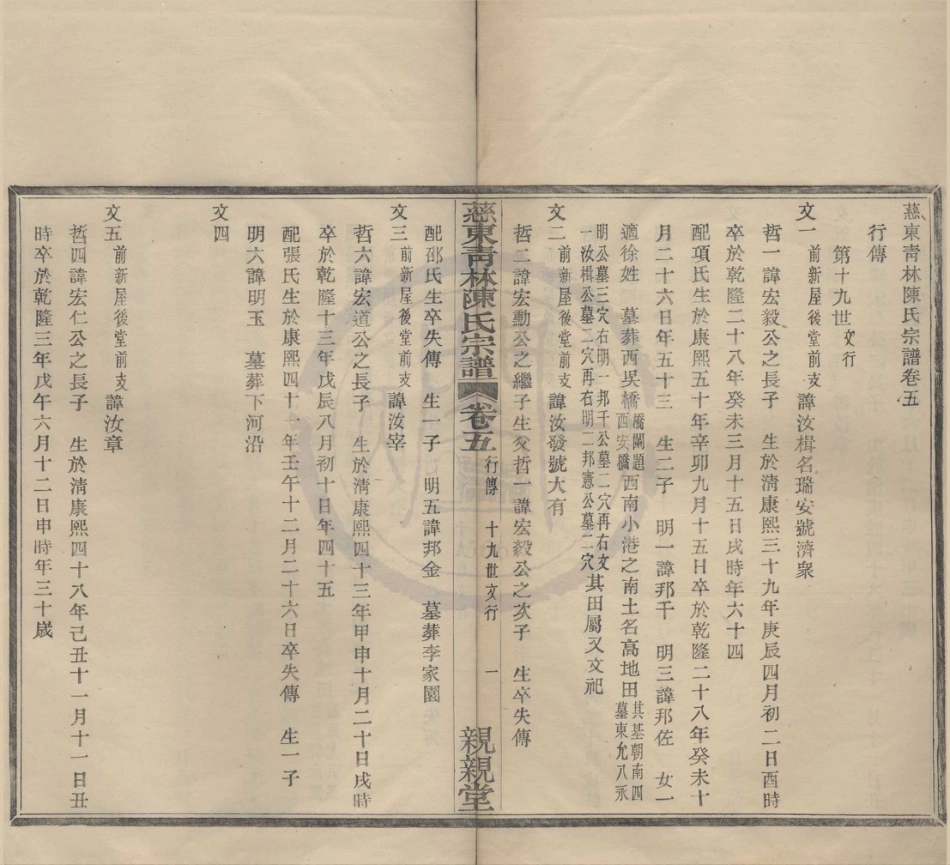 慈東青林陳氏宗譜卷五
行傳
第十九世文行
文一前新屋後堂前支 諱汝楫名瑞安號濟衆
哲一諱宏毅公之長子 生於清康熙三十九年庚辰四月初二日酉時
卒於乾隆二十八年癸未三月十五日戌時年六十四
配項氏生於康熙五十年辛卯九月十五日卒於乾隆二十八年癸未十
月二十六日年五十三 生二子 明一諱邦千 明三諱邦佐 女一
適徐姓 墓葬西吳橋橋闌題西安橋西南小港之南土名高地田其基朝南四墓東允八永
明公墓三穴右明一邦千公墓二穴再右文一汝楫公墓二穴再右明二邦憲公墓二穴其田屬又文祀
文二前新屋後堂前支 諱汝發號大有
哲二諱宏勳公之繼子生父哲一諱宏毅公之次子 生卒失傳
慈東青林陳氏宗譜 卷五 行傳 十九世文行 一 親親堂
配邵氏生卒失傳 生一子 明五諱邦金 墓葬李家園
文三前新屋後堂前支 諱汝宰
哲六諱宏道公之長子 生於清康熙四十三年甲申十月二十日戌時
卒於乾隆十三年戊辰八月初十日年四十五
配張氏生於康熙四十一年壬午十二月二十六日卒失傳 生一子
明六諱明玉 墓葬下河沿
文四
文五前新屋後堂前支 諱汝章
哲四諱宏仁公之長子 生於清康熙四十八年己丑十一月十一日丑
時卒於乾隆三年戊午六月十二日申時年三十歲